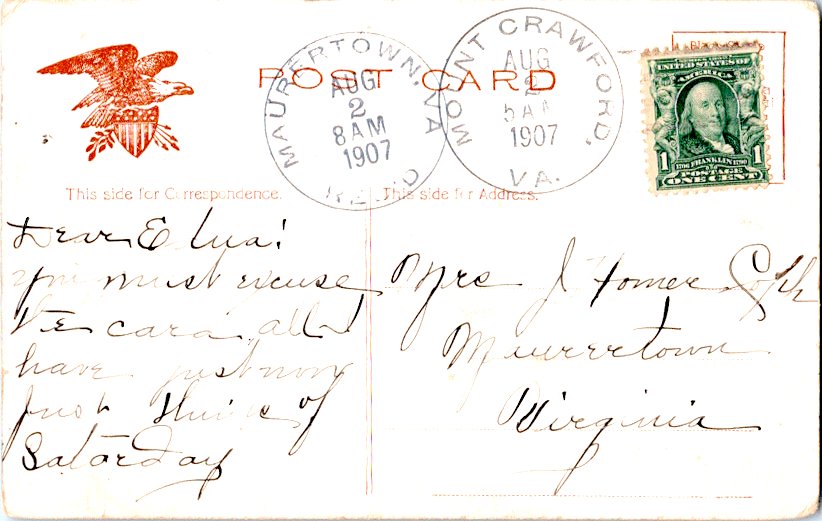 POST CARD
MAURERTOWN, VA.
AUG
2
8 AM
1907
REC'D.
MOUNT CRAWFORD,
AUG
2
5 AM
1907
VA.
SERIES 1902
UNITED STATES OF
AMERICA
1 1706 FRANKLIN 1790 1
POSTAGE
ONE CENT
This side for Correspondence.
This side for Address.
Dear
You must excuse
the card all I
have just now
Just think of
Satarday
Mrs J Homer
Maurertown
Virginia